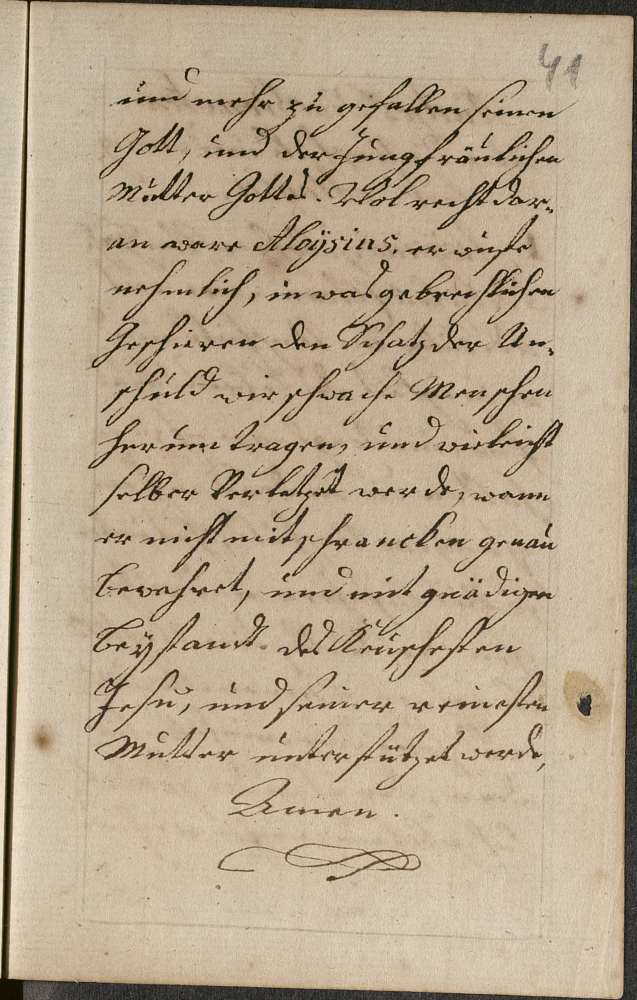 41
und mehr zu gefallen seinen
Gott, und der Jungfräulichen
Mutter Gottes. Wol recht dar-
an ware Aloÿsius, er wuste
nehmlich, in was gebrechlichen
Geschieren den Schatz der Un-
schuld wir schwache Menschen
herum tragen, und vieleicht
selber Verletzet werde, wann
er nicht mit schrancken genau
bewahret, und mit gnädigen
beystandt des Keuschesten
Jesu, und seiner reinesten
Mutter unterstützet werde,
Amen.